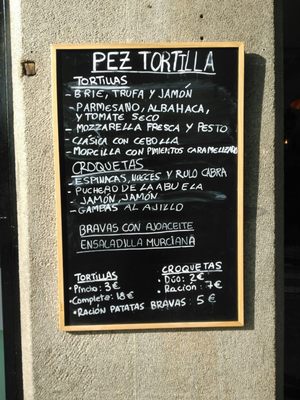 PEZ TORTILLA
TORTILLAS
- BRIE, TRUFA Y JAMÓN
- PARMESANO, ALBAHACA,
Y TOMATE SECO
- MOZZARELLA FRESCA Y PESTO
- CLÁSICA CON CEBOLLA
- MORCILLA CON PIMIENTOS CARAMELIZADO
CROQUETAS
- ESPINACAS, NUECES Y RULO CABRA
- PUCHERO DE LA ABUELA
- JAMÓN, JAMÓN
- GAMBAS AL AJILLO
BRAVAS CON AJOACEITE
ENSALADILLA MURCIANA
TORTILLAS
• Pincho: 3€
• Completa: 18€
CROQUETAS
• Dúo: 2€
• Ración: 7€
• RACIÓN PATATAS BRAVAS: 5€